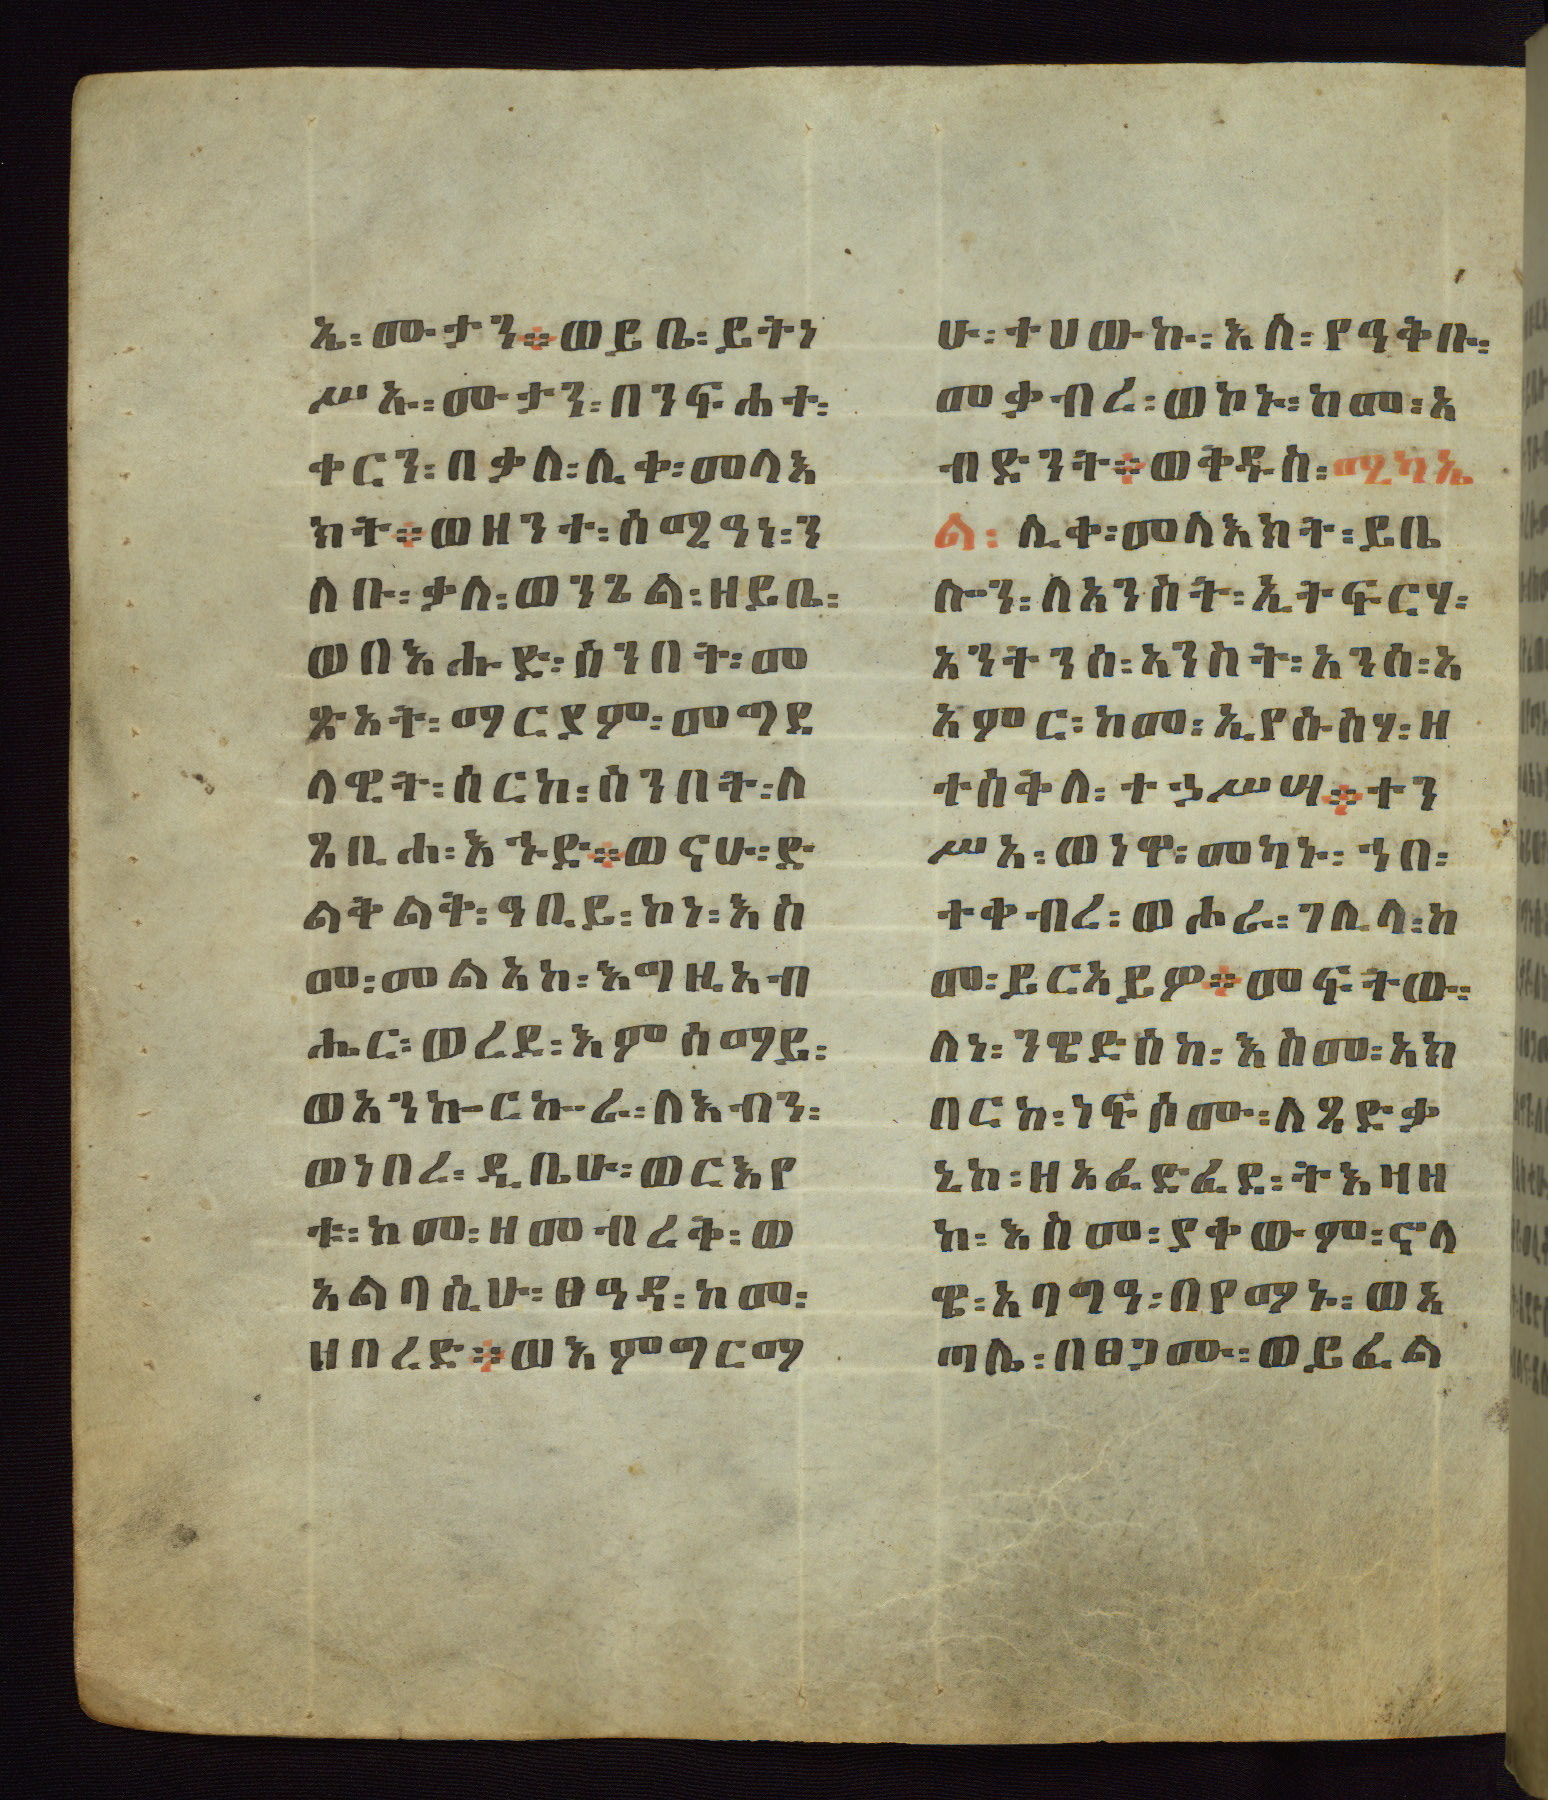 ኢ፡ሙታን።ወይቤ፡ይትነ
ሥኡ፡ሙታን፡በንፍሐተ፡
ቀርን፡በቃለ፡ሊቀ፡መላእ
ክት።ወዘንተ፡ሰሚዓነ፡ን
ለቡ፡ቃለ፡ወንጌል፡ዘይቤ፡
ወበእሑድ፡ሰንበት፡መ
ጽአት፡ማርያም፡መግደ
ላዊት፡ሰርከ፡ሰንበት፡ለ
ጸቢሐ፡እኁድ።ወናሁ፡ድ
ልቅልቅ፡ዓቢይ፡ኮነ፡እስ
መ፡መልአከ፡እግዚአብ
ሔር፡ወረደ፡እምሰማይ፡
ወአንኰርኰራ፡ለእብን፡
ወነበረ፡ዲቤሁ፡ወርእየ
ቱ፡ከመ፡ዘመብረቅ፡ወ
አልባሲሁ፡ፀዓዳ፡ከመ፡
ዘበረድ።ወእምግርማ
ሁ፡ተሀውኩ፡እለ፡የዓቅቡ፡
መቃብረ፡ወኮኑ፡ከመ፡አ
ብድንት።ወቅዱስ፡ሚካኤ
ል፡ሊቀ፡መላእክት፡ይቤ
ሎን፡ለአንስት፡ኢትፍርሃ፡
አንትንሰ፡አንስት፡አንሰ፡አ
አምር፡ከመ፡ኢየሱስሃ፡ዘ
ተሰቅለ፡ተኃሥሣ።ተን
ሥአ፡ወነዋ፡መካኑ፡ኀበ፡
ተቀብረ፡ወሖራ፡ገሊላ፡ከ
መ፡ይርአይዎ።መፍትው፡
ለነ፡ንዌድሰከ፡እስመ፡አክ
በርከ፡ነፍሰሙ፡ለጻድቃ
ኒከ፡ዘአፈድፈደ፡ትእዛዘ
ከ፡እስመ፡ያቀውም፡ኖላ
ዌ፡አባግዓ፡በየማኑ፡ወአ
ጣሌ፡በፀጋሙ፡ወይፈል